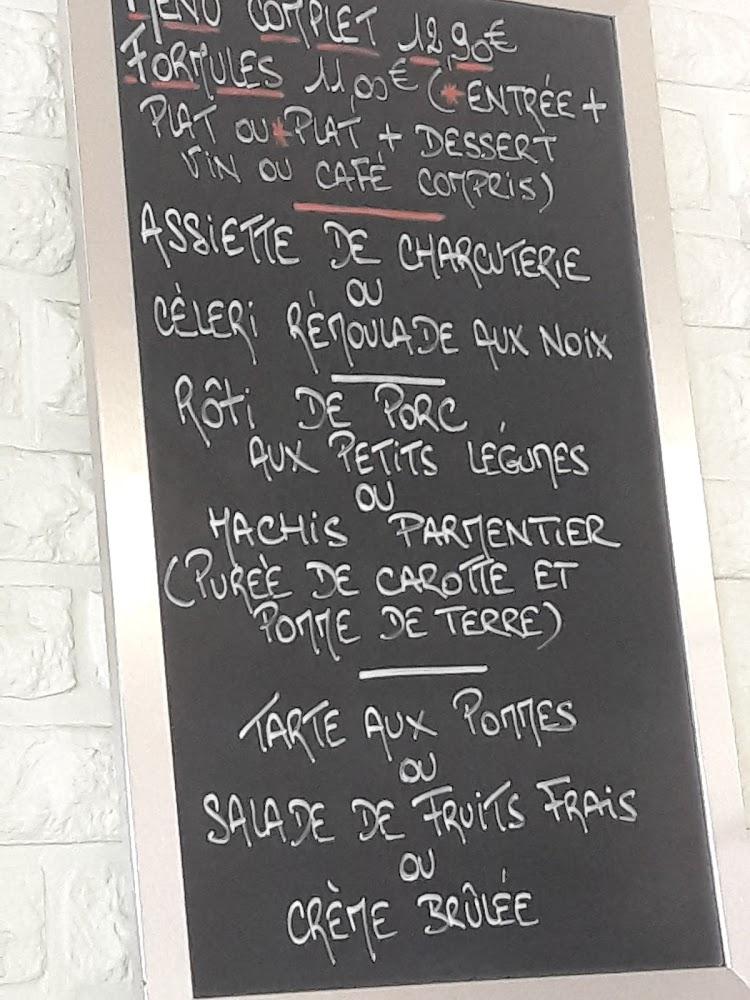 MENU COMPLET 12,90€
FORMULES 11,00€ (*ENTRÉE +
PLAT OU *PLAT + DESSERT
VIN OU CAFÉ COMPRIS)
ASSIETTE DE CHARCUTERIE
OU
CÈLERI RÉMOULADE AUX NOIX
RÔTI DE PORC
AUX PETITS LÉGUMES
OU
HACHIS PARMENTIER
(PURÉE DE CAROTTE ET
POMME DE TERRE)
TARTE AUX POMMES
OU
SALADE DE FRUITS FRAIS
OU
CRÈME BRÛLÉE